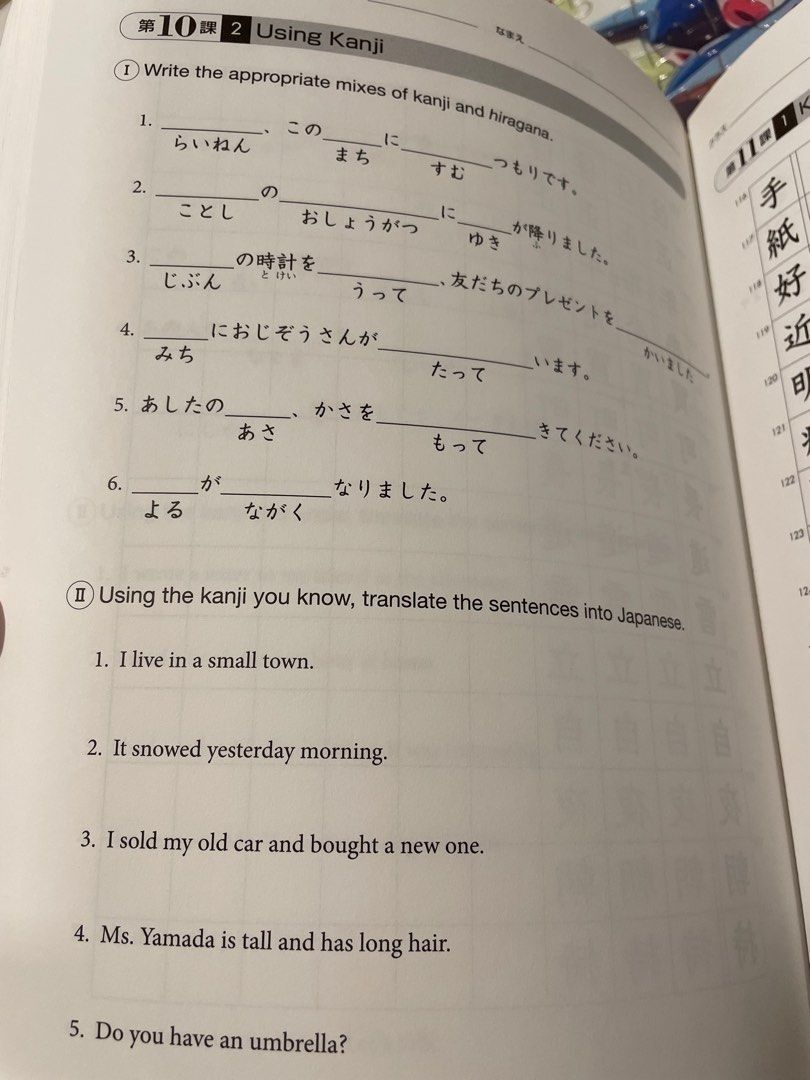 第10課 2 Using Kanji
なまえ
Ⅰ Write the appropriate mixes of kanji and hiragana.
1. ________、この____に________つもりです。
らいねん まち すむ
2. ________の________に____が降りました。
ことし おしょうがつ ゆき ふ
3. ________の時計を________、友だちのプレゼントを________。
じぶん と けい うって かいました
4. ____におじぞうさんが________います。
みち たって
5. あしたの____、かさを________きてください。
あさ もって
6. ____が________なりました。
よる ながく
Ⅱ Using the kanji you know, translate the sentences into Japanese.
1. I live in a small town.
2. It snowed yesterday morning.
3. I sold my old car and bought a new one.
4. Ms. Yamada is tall and has long hair.
5. Do you have an umbrella?
クラス
第11課 1 K
116 手
117 紙
118 好
119 近
120 明
121
122
123